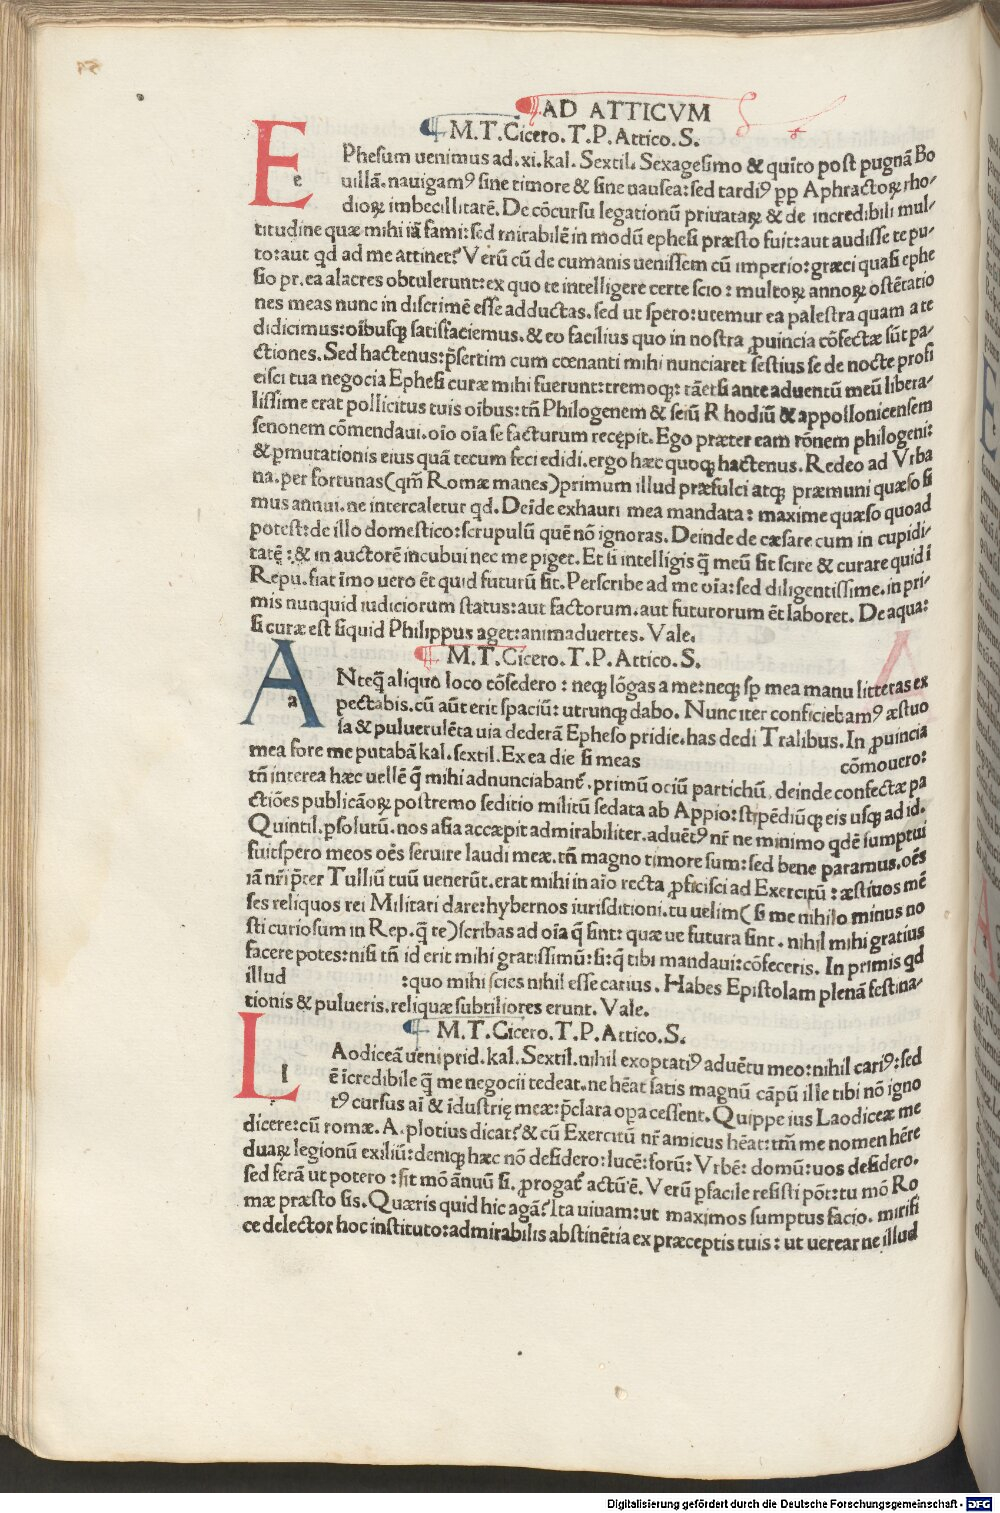 AD ATTICVM
M.T.Cicero.T.P.Attico.S.
EPhesum uenimus ad.xi.kal.Sextil.Sexagesimo & quīto post pugnā Bo
uillā.nauigamꝰ sine timore & sine nausea:sed tardiꝰ ꝑꝑ Aphractoꝝ rho-
dioꝝ imbecillitatē.De cōcursu legationū priuataꝝ & de incredibili mul-
titudine quæ mihi iā sami:sed mirabilē in modū ephesi præsto fuit:aut audisse te pu-
to:aut qd ad me attinet?Verū cū de cumanis uenissem cū imperio:græci quasi ephe
sio pr.ea alacres obtulerunt:ex quo te intelligere certe scio: multoꝝ annoꝝ ostētatio
nes meas nunc in discrimē esse adductas.sed ut spero:utemur ea palestra quam a te
didicimus:oībusqꝫ satisfaciemus.& eo facilius quo in nostra ꝓuincia cōfectæ sūt pa-
ctiones.Sed hactenus:p̄sertim cum cœnanti mihi nunciaret sestius se de nocte profi
cisci tua negocia Ephesi curæ mihi fuerunt:tremoqꝫ: tāetsi ante aduentū meū libera-
lissime erat pollicitus tuis oībus:tn̄ Philogenem & seiū Rhodiū & appollonicensem
senonem cōmendaui.oīo oīa se facturum recępit.Ego præter eam rōnem philogeni:
& ꝑmutationis eius quā tecum feci edidi.ergo hæc quoqꝫ hactenus.Redeo ad Vrba
na.per fortunas(qm̄ Romæ manes)primum illud præfulci atqꝫ præmuni quæso si
mus annui.ne intercaletur qd.Deīde exhauri mea mandata: maxime quæso quoad
potest:de illo domestico:scrupulū quē nō ignoras.Deinde de cæsare cum in cupidi-
tatē:& in auctorē incubui nec me piget.Et si intelligis q̄ meū sit scire & curare quid ī
Repu.fiat īmo uero ēt quid futurū sit.Perscribe ad me oīa:sed diligentissime.in pri-
mis nunquid iudiciorum status:aut factorum.aut futurorum ēt laboret. De aqua:
si curæ est siquid Philippus aget:animaduertes. Vale.
M.T.Cicero.T.P.Attico.S.
ANteq̄ aliquo loco cōsedero : neqꝫ lōgas a me:neqꝫ sp mea manu litteras ex
pectabis.cū aūt erit spaciū: utrunqꝫ dabo. Nunc iter conficiebamꝰ æstuo
sa & puluerulēta uia dederā Epheso pridie.has dedi Tralibus.In ꝓuincia
mea fore me putabā kal.sextil.Ex ea die si meas cōmouero:
tn̄ interea hæc uellē q̄ mihi adnunciabant̄.primū ociū partichū.deinde confectæ pa
ctiōes publicāoꝝ postremo seditio militū sedata ab Appio:stipēdiūqꝫ eis usqꝫ ad id.
Quintil.ꝑsolutū.nos asia accæpit admirabiliter.aduētꝰ nr̄ ne minimo qdē sumptui
fuit spero meos oēs seruire laudi meæ.tn̄ magno timore sum:sed bene paramus.oēs
iā nr̄i p̄ter Tulliū tuū uenerūt.erat mihi in aīo recta ꝓficisci ad Exercitū : æstiuos mē
ses reliquos rei Militari dare:hybernos iurisditioni.tu uelim( si me nihilo minus no
sti curiosum in Rep.q̄ te)scribas ad oīa q̄ sint: quæ ue futura sint . nihil mihi gratius
facere potes:nisi tn̄ id erit mihi gratissimū:si:q̄ tibi mandaui:cōfeceris. In primis qd
illud :quo mihi scies nihil esse carius. Habes Epistolam plenā festina-
tionis & pulueris.reliquæ subtiliores erunt. Vale.
M.T.Cicero.T.P.Attico.S.
LAodiceā ueni prid.kal.Sextil.nihil exoptatiꝰ aduētu meo:nihil cariꝰ:sed
ē īcredibile q̄ me negocii tedeat.ne hēat satis magnū cāpū ille tibi nō igno
tꝰ cursus aī & īdustrię meæ:p̄clara opa cessent.Quippe ius Laodiceæ me
dicere:cū romæ. A.plotius dicat?& cū Exercitū nr̄ amicus hēat:tm̄ me nomen hēre
duaꝝ legionū exiliū:deniqꝫ hæc nō desidero:lucē:forū: Vrbē: domū:uos desidero.
sed ferā ut potero :sit mō ānuū si. ꝓrogat̄ actū ē. Verū ꝑfacile resisti pōt:tu mō Ro
mæ præsto sis.Quæris quid hic agā?Ita uiuam:ut maximos sumptus facio. mirifi
ce delector hoc instituto:admirabilis abstinētia ex præceptis tuis : ut uerear ne illud
Digitalisierung gefördert durch die Deutsche Forschungsgemeinschaft - DFG